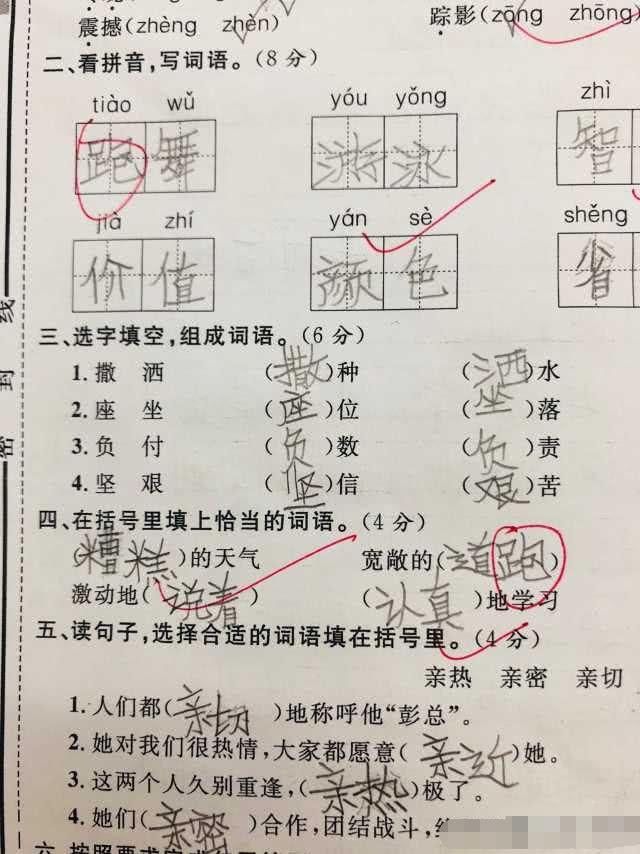 震撼(zhèng zhèn) 踪影(zōng zhōng)
二、看拼音,写词语。(8分)
tiào wǔ yóu yǒng zhì
跑舞 游泳 智
jià zhí yán sè shěng
价值 颜色 省
三、选字填空,组成词语。(6分)
1.撒 洒 (撒)种 (洒)水
2.座 坐 (座)位 (坐)落
3.负 付 (负)数 (负)责
4.坚 艰 (坚)信 (艰)苦
四、在括号里填上恰当的词语。(4分)
(糟糕)的天气 宽敞的(道跑)
激动地(说着) (认真)地学习
五、读句子,选择合适的词语填在括号里。(4分)
亲热 亲密 亲切
1.人们都(亲切)地称呼他“彭总”。
2.她对我们很热情,大家都愿意(亲近)她。
3.这两个人久别重逢,(亲热)极了。
4.她们(亲密)合作,团结战斗,
六、按照要求
线
封
密